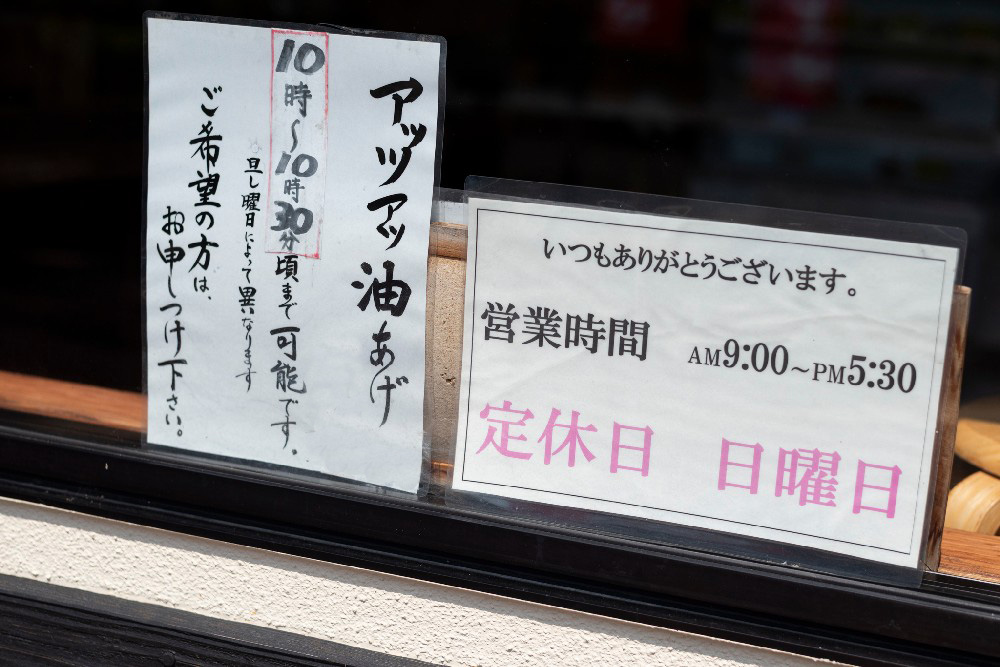 アッツアッ油あげ
10時〜10時30分頃まで可能です。
旦し曜日によって異なります
ご希望の方は、
お申しつけ下さい。
いつもありがとうございます。
営業時間 AM9:00~PM5:30
定休日 日曜日